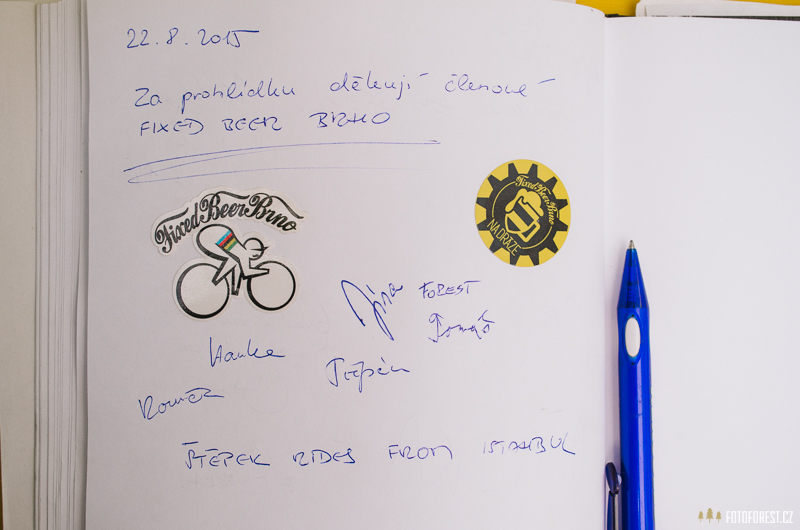 22.8.2015
Za prohlídku děkují členové
FIXED BEER BRNO
FixedBeerBrno
FixedBeerBrno
NA DRÁZE
Jirka FOREST
Tomáš
Hanka
Štěpán
Roměk
ŠTĚPEK RIDES FROM ISTANBUL
FOTOFOREST.CZ